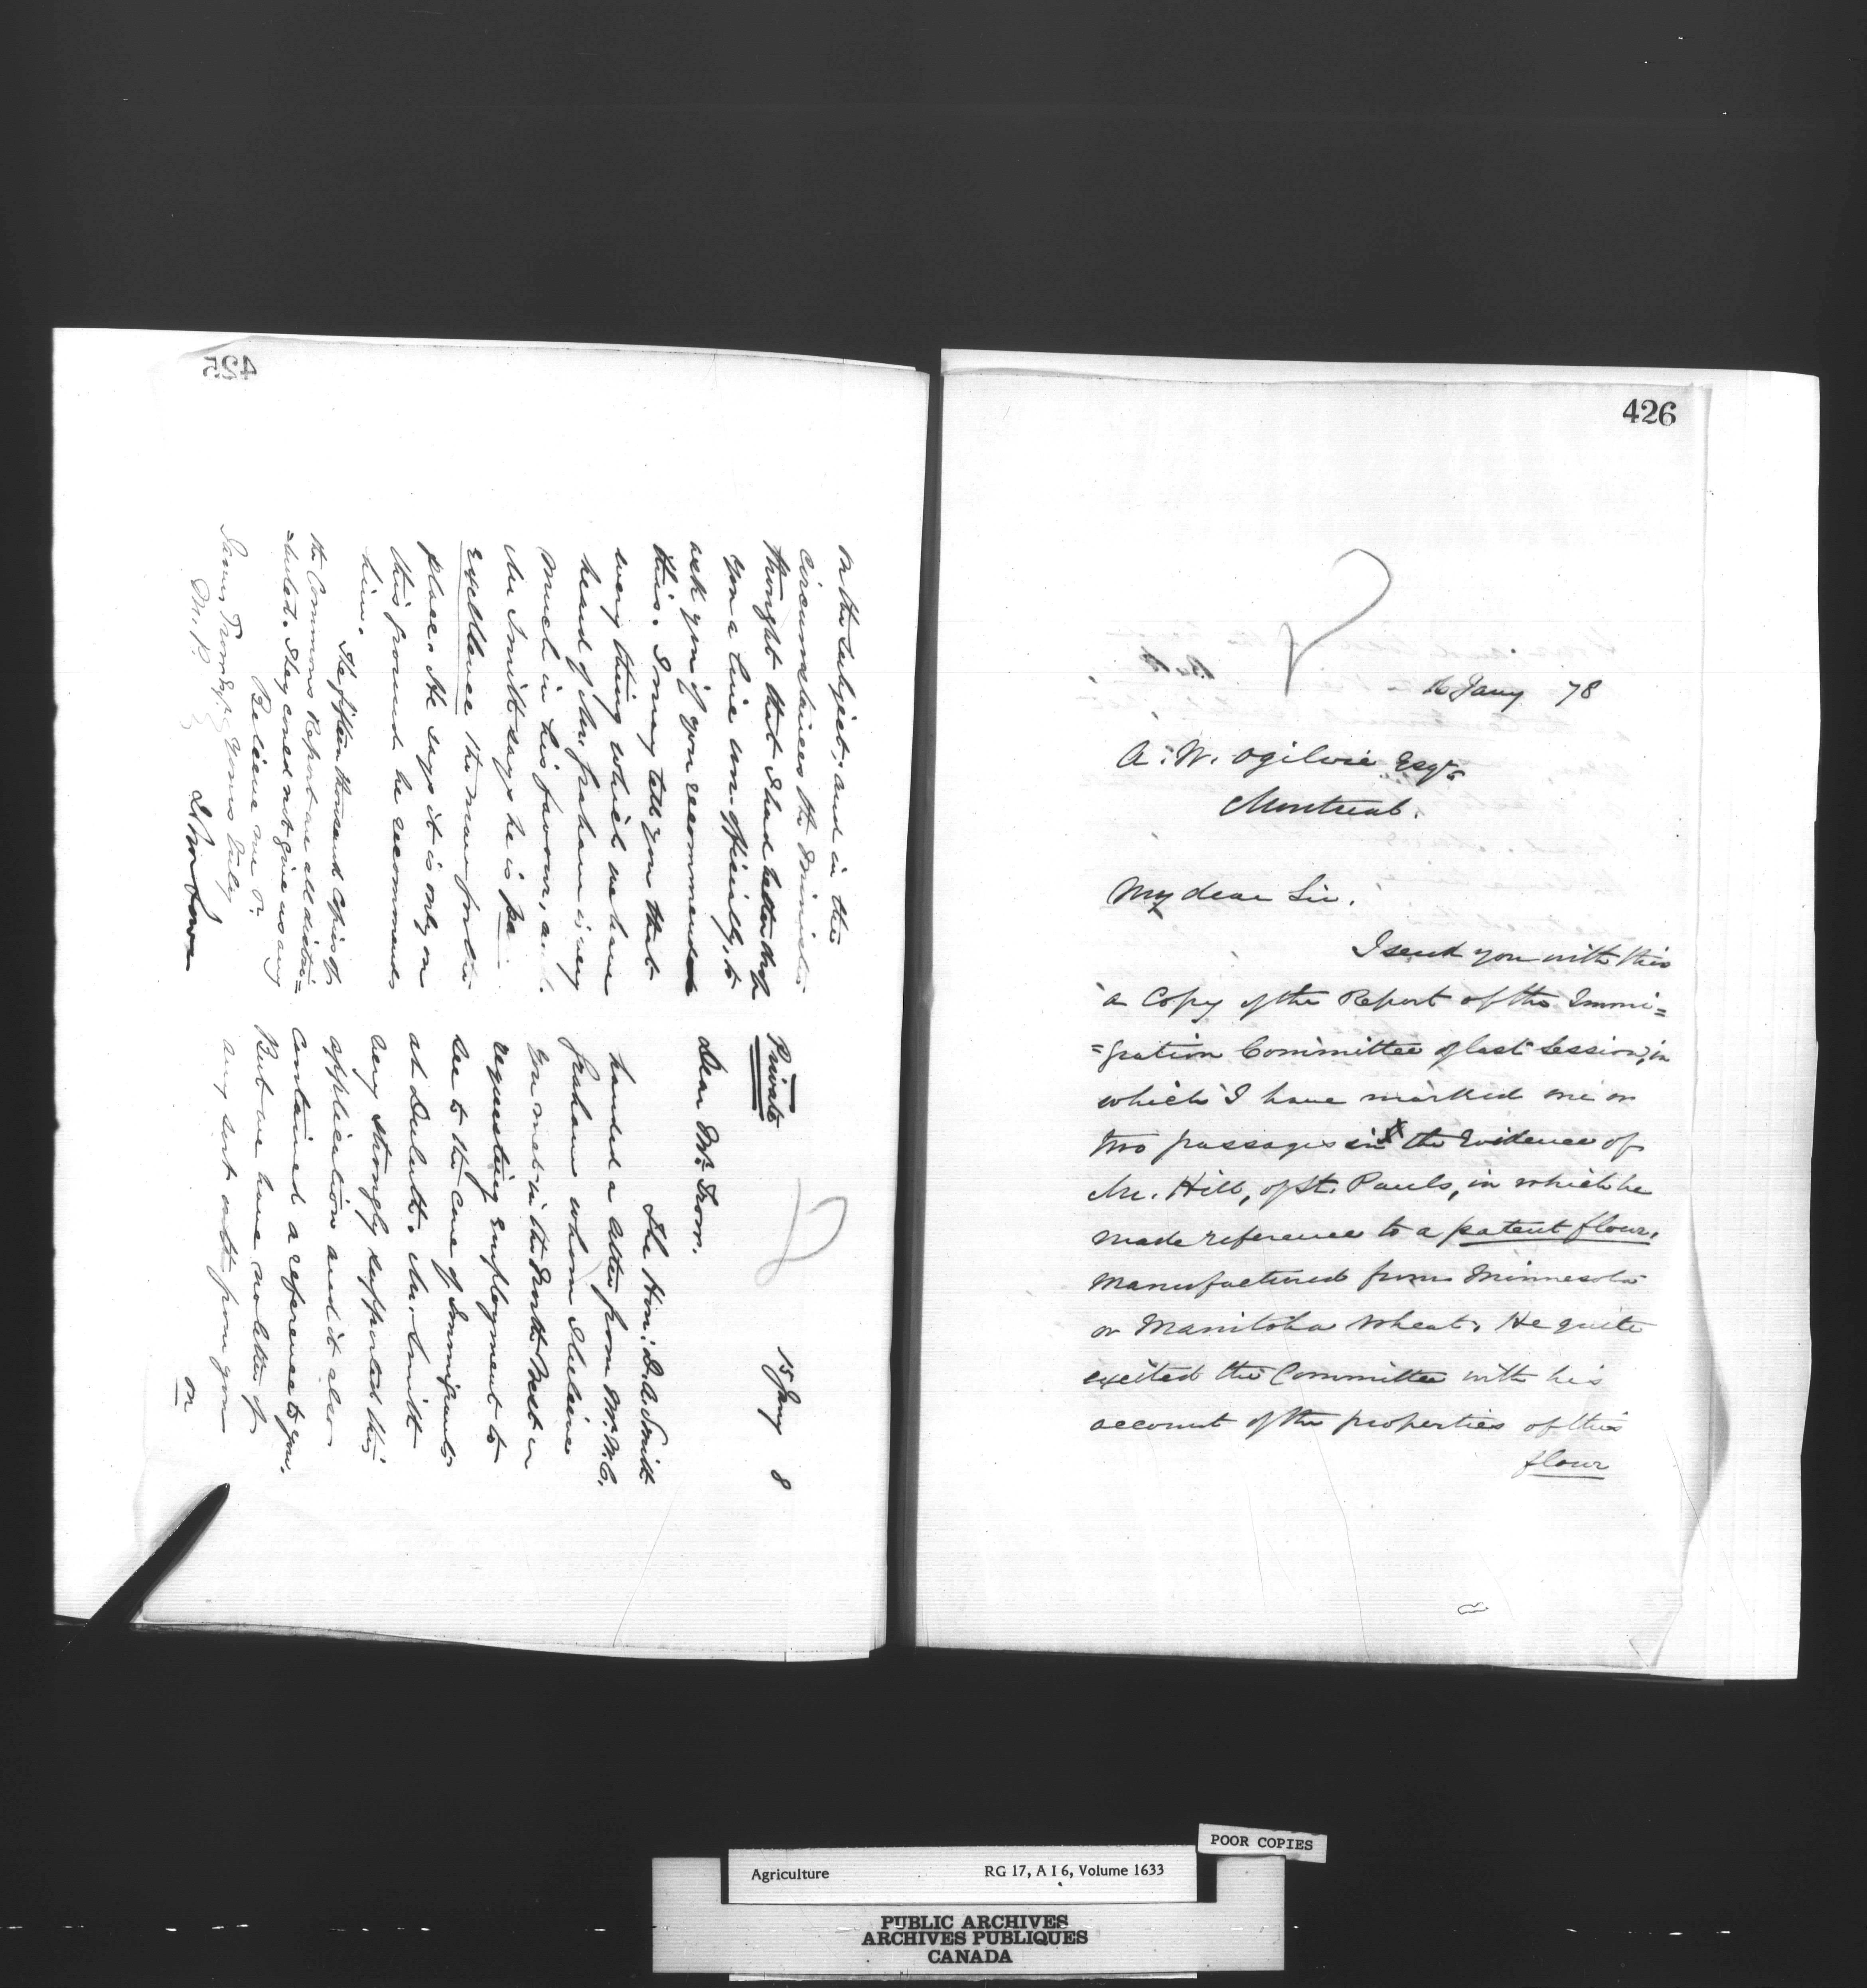 425
Private
15 Jany 8
Dear Mr. Trow.
The Hon: D. A. Smith
handed a letter from Mr. W. C.
Graham whom I believe
you met in the North West in
requesting employment to
see to the Care of Immigrants
at Duluth. Mr. Smith
very strongly supported this
application and it also
Contained a reference to you.
But we have no letter of
any sort
from you
on
on the subject; and in the
Circumstances the Minister
thought that I had better drop
you a line un-officially, to
ask you if you recommended
this. I may tell you that
every thing which we have
heard of Mr. Graham is very
much in his favour, and
Mr Smith says he is par
excellence the man for the
place. He says it is only on
this ground he recommends
him.
The fifteen thousand Copies of
the Commons Report are all distri=
=buted. They could not give us any
Believe me
Yours truly
James Trow Esq.
M. P.
J Lowe
426
16 Jany 78
A. W. Ogilvie Esqr.
Montreal.
My dear Sir.
I send you with this
a Copy of the Report of the Immi=
=gration Committee of last Session, in
which I have marked one or
two passages in the Evidence of
Mr. Hill, of St. Pauls, in which he
made reference to a patent flour,
manufactured from Minnesota
or Manitoba Wheat. He quite
excited the Committee with his
account of the properties of this
flour
POOR COPIES
Agriculture RG 17, A I 6, Volume 1633
PUBLIC ARCHIVES
ARCHIVES PUBLIQUES
CANADA